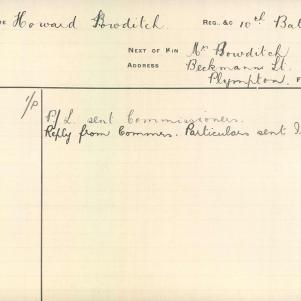 Howard Bowditch. REG. &C 10th Bat
NEXT OF KIN Mr Bowditch
ADDRESS Beckmann St.
Plympton.
P/L. sent Commissioners.
Reply from Commrs. Particulars sent